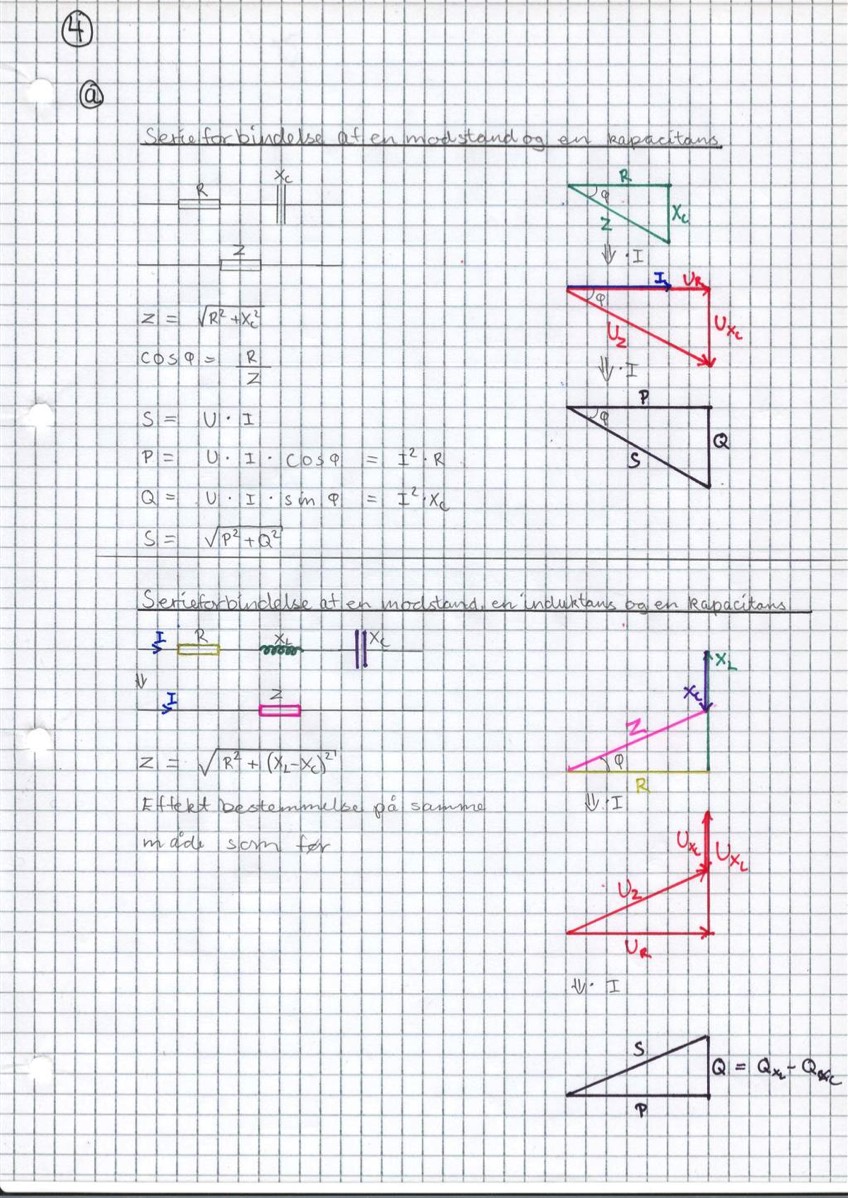 4
a
Serieforbindelse af en modstand og en kapacitans
R
Xc
Z
Z = √R² + Xc²
cos φ = R/Z
S = U · I
P = U · I · cos φ = I² · R
Q = U · I · sin φ = I² · Xc
S = √P² + Q²
R
φ
Z
Xc
⇓ · I
I
UR
φ
UZ
UXc
⇓ · I
P
φ
S
Q
Serieforbindelse af en modstand, en induktans og en kapacitans
I
R
XL
Xc
⇓
I
Z
Z = √R² + (XL - Xc)²
Effekt bestemmelse på samme
måde som før
XL
Xc
Z
φ
R
⇓ · I
UXc
UXL
UZ
UR
⇓ · I
S
Q = QXL - QXc
P